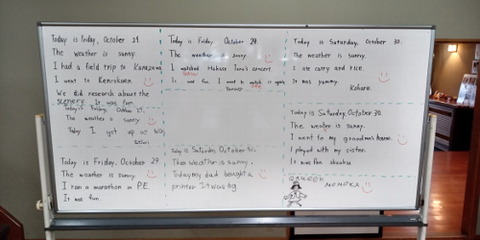 Today is Friday, October 29.
The weather is sunny.
I had a field trip to Kanazawa
I went to Kenrokuen.
We did research about the
scenery. It was fun.
Today is Friday, October 29.
The weather is sunny
Today I got up at
Today is Friday, October 29
The weather is sunny.
I ran a marathon in P.E.
It was fun.
Today is Friday October 29.
The weather is sunny
I watched Hakuse Taro's concert
It was fun. I want to watch it again
Today is Saturday, October 30.
The weather is sunny.
Today my dad bought a
printer It was big
Today is Saturday, October 30.
The weather is sunny.
I ate curry and rice.
It was yummy.
Kohara
Today is Saturday, October 30.
The weather is sunny.
I went to my grandma's house.
I played with my sister.
It was fun
MOMOKA